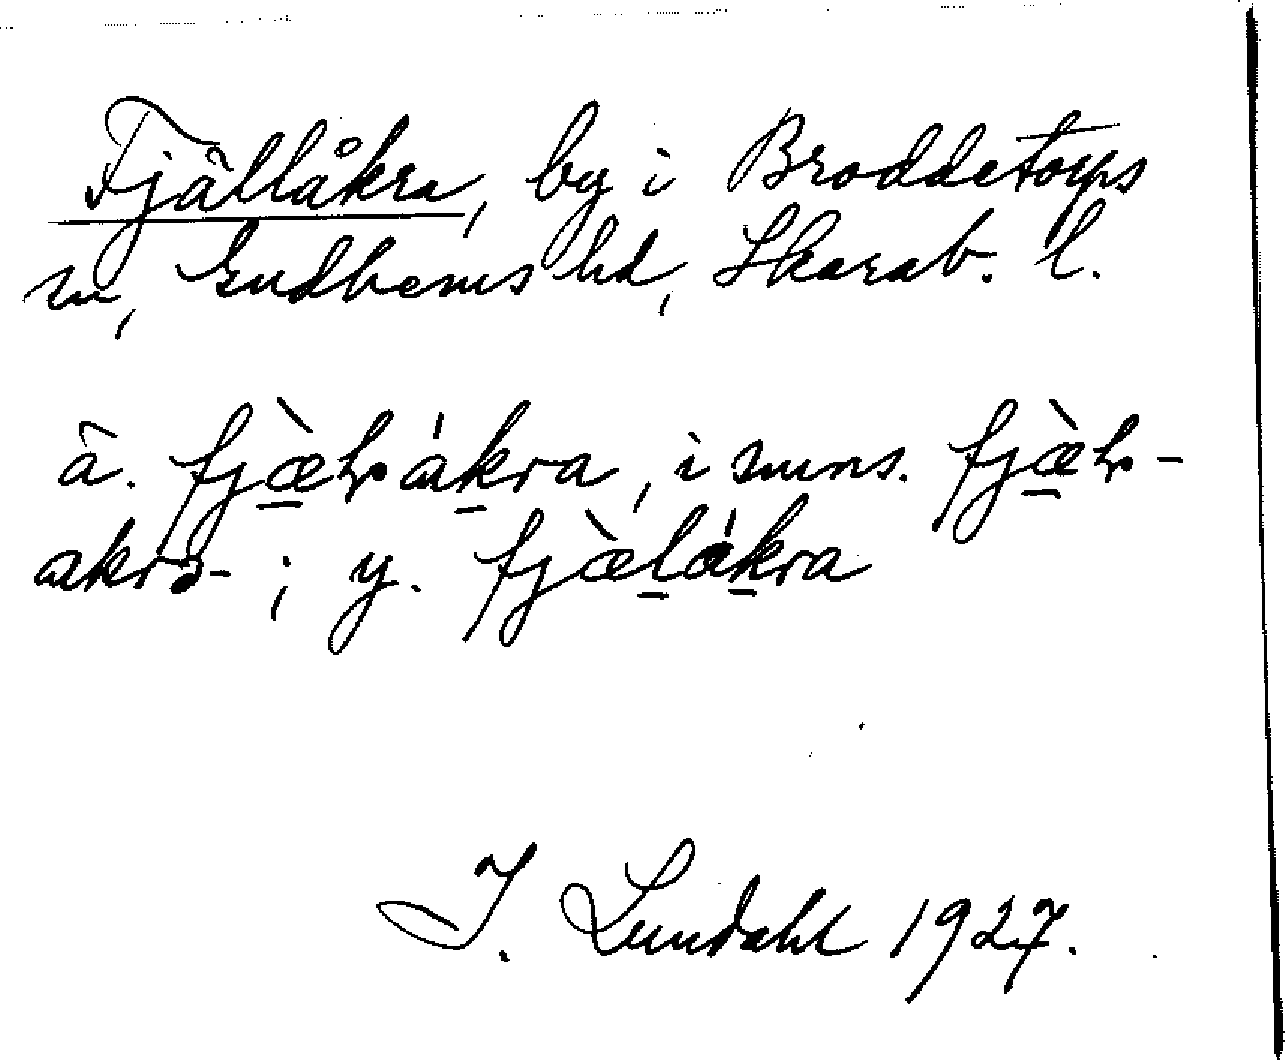 Fjällåkra, by i Broddetorps
sn, Gudhems hd, Skarab. l.
ä. fjæ̀ɫákra, i smns. fjæ̀ɫ-
akrə-; y. fjæ̀lákra
I. Lundahl 1927.